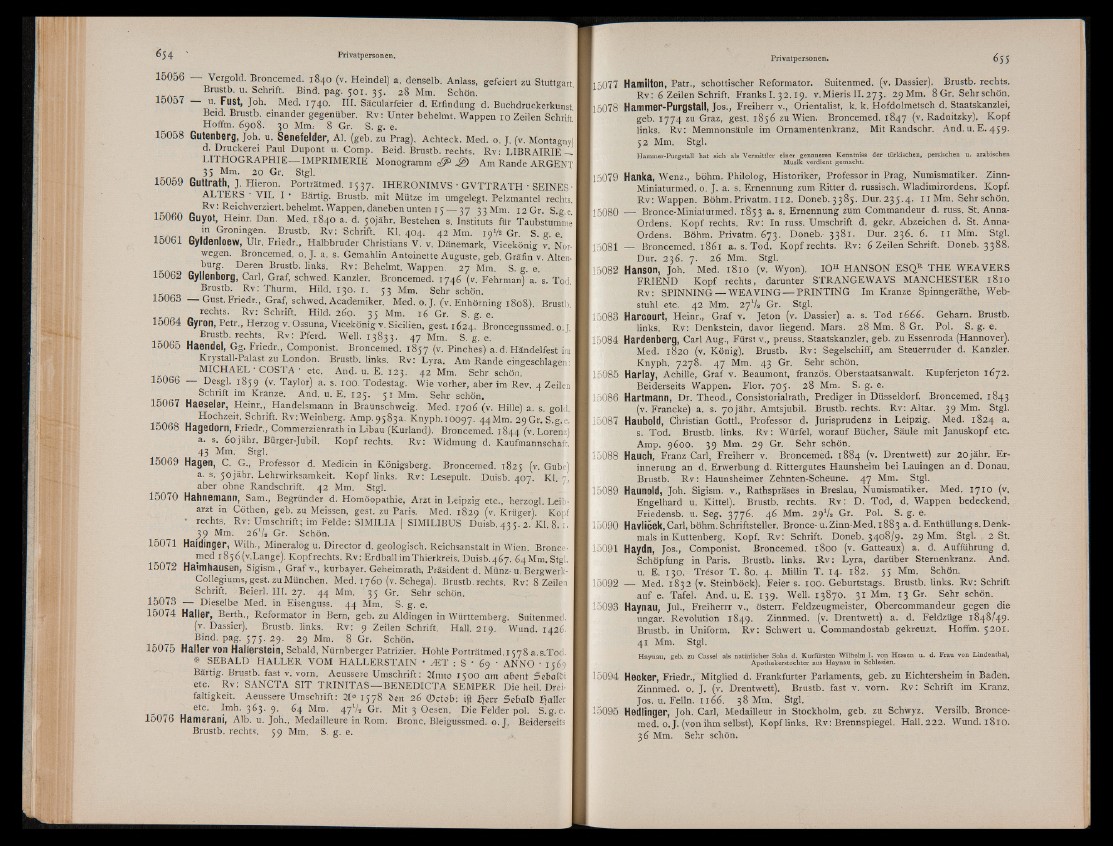 654
Privatpersonen.
15056 — Vergold. Broncemed. 1840 (v. Heindel) a. denselb. Anlass, gefeiert zu Stuttgart.
Brustb. u. Schrift. Bind. pag. 501. 35. 28 Mm. Schön.
15057 — u. Fust, Joh. Med. 1740. III. Säcularfeier d. Erfindung d. Buchdruckerkunst.
Beid. Brustb. einander gegenüber. Rv: Unter behelmt. Wappen 10 Zeilen Schrift.
Hoffm. 6908. 30 Mm. 8 Gr. S. g. e.
15058 Gutenberg, Joh. u. Senefelder, Al. (geb. zu Prag). Achteck. Med. o. J. (v. Montagny)
d. Druckerei Paul Dupont u. Comp. Beid. Brustb. rechts. Rv: LIBRAIRIE —
LITHOGRAPHIE—IMPRIMERIE Monogramm Am Rande ARGENT
35 Mm. 20 Gr. Stgl.
15059 Guttrath, J. Hieron. Porträtmed. 1537. IHERONIMVS · GVTTRATH · SEINES ·
ALTERS · VIL I · Bärtig. Brustb. mit Mütze im umgelegt. Pelzmantel rechts.
Rv: Reichverziert. behelmt. Wappen, daneben unten 15 — 37 33 Mm. 12 Gr. S.g.e.
15060 Guyot, Heinr. Dan. Med. 1840 a. d. 50jähr. Bestehen s. Instituts für Taubstumme
in Groningen. Brustb. Rv: Schrift. Kl. 404. 42 Mm. 19½ Gr. S. g. e.
15061 Gyldenloew, Ulr. Friedr., Halbbruder Christians V. v. Dänemark, Vicekönig v. Nor-
wegen. Broncemed. o. J. a. s. Gemahlin Antoinette Auguste, geb. Gräfin v. Alten-
burg. Deren Brustb. links. Rv: Behelmt. Wappen. 27 Mm. S. g. e.
15062 Gyllenberg, Carl, Graf, schwed. Kanzler. Broncemed. 1746 (v. Fehrman) a. s. Tod.
Brustb. Rv: Thurm. Hild. 130. 1. 53 Mm. Sehr schön.
15063 — Gust. Friedr., Graf, schwed. Academiker. Med. o. J. (v. Enhörning 1808). Brustb.
rechts. Rv: Schrift. Hild. 260. 35 Mm. 16 Gr. S. g. e.
15064 Gyron, Petr., Herzog v. Ossuna, Vicekönig v. Sicilien, gest. 1624. Broncegussmed. o. J.
Brustb. rechts. Rv: Pferd. Well. 13833. 47 Mm. S. g. e.
15065 Haendel, Gg. Friedr., Componist. Broncemed. 1857 (v. Pinches) a. d. Händelfest im
Krystall-Palast zu London. Brustb. links. Rv: Lyra. Am Rande eingeschlagen:
MICHAEL · COSTA · etc. And. u. E. 123. 42 Mm. Sehr schön.
15066 — Desgl. 1859 (v. Taylor) a. s. 100. Todestag. Wie vorher, aber im Rev. 4 Zeilen
Schrift im Kranze. And. u. E. 125. 51 Mm. Sehr schön.
15067 Haeseler, Heinr., Handelsmann in Braunschweig. Med. 1706 (v. Hille) a. s. gold.
Hochzeit. Schrift. Rv: Weinberg. Amp. 9583a. Knyph. 10097. 44 Mm. 29 Gr. S. g. e.
15068 Hagedorn, Friedr., Commerzienrath in Libau (Kurland). Broncemed. 1844 (v. Lorenz)
a. s. 60jähr. Bürger-Jubil. Kopf rechts. Rv: Widmung d. Kaufmannschaft.
43 Mm. Stgl.
15069 Hagen, C. G., Professor d. Medicin in Königsberg. Broncemed. 1825 (v. Gube)
a. s. 50jähr. Lehrwirksamkeit. Kopf links. Rv: Lesepult. Duisb. 407. Kl. 7,
aber ohne Randschrift. 42 Mm. Stgl.
15070 Hahnemann, Sam., Begründer d. Homöopathie, Arzt in Leipzig etc., herzogl. Leib-
arzt in Cöthen, geb. zu Meissen, gest. zu Paris. Med. 1829 (v. Krüger). Kopf
rechts. Rv: Umschrift; im Felde: SIMILIA | SIMILIBUS Duisb. 435. 2. Kl. 8. 1.
39 Mm. 26½ Gr. Schön.
15071 Haidinger, Wilh., Mineralog u. Director d. geologisch. Reichsanstalt in Wien. Bronce-
med 1856 (v. Lange). Kopf rechts. Rv: Erdball im Thierkreis. Duisb. 467. 64 Mm. Stgl.
15072 Haimhausen, Sigism., Graf v., kurbayer. Geheimrath, Präsident d. Münz- u. Bergwerk-
Collegiums, gest. zu München. Med. 1760 (v. Schega). Brustb. rechts. Rv: 8 Zeilen
Schrift. Beierl. III. 27. 44 Mm. 35 Gr. Sehr schön.
15073 — Dieselbe Med. in Eisenguss. 44 Mm. S. g. e.
15074 Haller, Berth., Reformator in Bern, geb. zu Aldingen in Württemberg. Suitenmed.
(v. Dassier). Brustb. links. Rv: 9 Zeilen Schrift. Hall. 219. Wund. 1426.
Bind. pag. 575. 29. 29 Mm. 8 Gr. Schön.
15075 Haller von Hallerstein, Sebald, Nürnberger Patrizier. Hohle Porträtmed. 1578 a. s. Tod.
SEBALD HALLER VOM HALLERSTAIN · ÆT : S · 69 · ANNO · 1569
Bärtig. Brustb. fast v. vorn. Aeussere Umschrift: Anno 1500 am abent Sebaldi
etc. Rv: SANCTA SIT TRINITAS—BENEDICTA SEMPER Die heil. Drei-
faltigkeit. Aeussere Umschrift: Ao 1578 den 26 Octob: ist Herr Sebald Haller
etc. Imh. 363. 9. 64 Mm. 47½ Gr. Mit 3 Oesen. Die Felder pol. S. g. e.
15076 Hamerani, Alb. u. Joh., Medailleure in Rom. Bronc. Bleigussmed. o. J. Beiderseits
Brustb. rechts. 59 Mm. S. g. e.
Privatpersonen.
655
15077 Hamilton, Patr., schottischer Reformator. Suitenmed. (v. Dassier). Brustb. rechts.
Rv: 6 Zeilen Schrift. Franks I. 32. 19. v. Mieris II. 273. 29 Mm. 8 Gr. Sehr schön.
15078 Hammer-Purgstall, Jos., Freiherr v., Orientalist, k. k. Hofdolmetsch d. Staatskanzlei,
geb. 1774 zu Graz, gest. 1856 zu Wien. Broncemed. 1847 (v. Radnitzky). Kopf
links. Rv: Memnonsäule im Ornamentenkranz. Mit Randschr. And. u. E. 459.
52 Mm. Stgl.
Hammer-Purgstall hat sich als Vermittler einer genaueren Kenntniss der türkischen, persischen u. arabischen
Musik verdient gemacht.
15079 Hanka, Wenz., böhm. Philolog, Historiker, Professor in Prag, Numismatiker. Zinn-
Miniaturmed. o. J. a. s. Ernennung zum Ritter d. russisch. Wladimirordens. Kopf.
Rv: Wappen. Böhm. Privatm. 112. Doneb. 3385. Dur. 235. 4. 11 Mm. Sehr schön.
15080 — Bronce-Miniaturmed. 1853 a. s. Ernennung zum Commandeur d. russ. St. Anna-
Ordens. Kopf rechts. Rv: In russ. Umschrift d. gekr. Abzeichen d. St. Anna-
Ordens. Böhm. Privatm. 673. Doneb. 3381. Dur. 236. 6. 11 Mm. Stgl.
15081 — Broncemed. 1861 a. s. Tod. Kopf rechts. Rv: 6 Zeilen Schrift. Doneb. 3388.
Dur. 236. 7. 26 Mm. Stgl.
15082 Hanson, Joh. Med. 1810 (v. Wyon). IOH HANSON ESQR THE WEAVERS
FRIEND Kopf rechts, darunter STRANGEWAYS MANCHESTER 1810
Rv: SPINNING—WEAVING—PRINTING Im Kranze Spinngeräthe, Web-
stuhl etc. 42 Mm. 27½ Gr. Stgl.
15083 Harcourt, Heinr., Graf v. Jeton (v. Dassier) a. s. Tod 1666. Geharn. Brustb.
links. Rv: Denkstein, davor liegend. Mars. 28 Mm. 8 Gr. Pol. S. g. e.
15084 Hardenberg, Carl Aug., Fürst v., preuss. Staatskanzler, geb. zu Essenroda (Hannover).
Med. 1820 (v. König). Brustb. Rv: Segelschiff, am Steuerruder d. Kanzler.
Knyph. 7278. 47 Mm. 43 Gr. Sehr schön.
15085 Harlay, Achille, Graf v. Beaumont, französ. Oberstaatsanwalt. Kupferjeton 1672.
Beiderseits Wappen. Flor. 705. 28 Mm. S. g. e.
15086 Hartmann, Dr. Theod., Consistorialrath, Prediger in Düsseldorf. Broncemed. 1843
(v. Francke) a. s. 70jähr. Amtsjubil. Brustb. rechts. Rv: Altar. 39 Mm. Stgl.
15087 Haubold, Christian Gottl., Professor d. Jurisprudenz in Leipzig. Med. 1824 a.
s. Tod. Brustb. links. Rv: Würfel, worauf Bücher, Säule mit Januskopf etc.
Amp. 9600. 39 Mm. 29 Gr. Sehr schön.
15088 Hauch, Franz Carl, Freiherr v. Broncemed. 1884 (v. Drentwett) zur 20jähr. Er-
innerung an d. Erwerbung d. Rittergutes Haunsheim bei Lauingen an d. Donau.
Brustb. Rv: Haunsheimer Zehnten-Scheune. 47 Mm. Stgl.
15089 Haunold, Joh. Sigism. v., Rathspräses in Breslau, Numismatiker. Med. 1710 (v.
Engelhard u. Kittel). Brustb. rechts. Rv: D. Tod, d. Wappen bedeckend.
Friedensb. u. Seg. 3776. 46 Mm. 29½ Gr. Pol. S. g. e.
15090 Havliček, Carl, böhm. Schriftsteller. Bronce- u. Zinn-Med. 1883 a. d. Enthüllung s. Denk-
mals in Kuttenberg. Kopf. Rv: Schrift. Doneb. 3408/9. 29 Mm. Stgl. 2 St.
15091 Haydn, Jos., Componist. Broncemed. 1800 (v. Gatteaux) a. d. Aufführung d.
Schöpfung in Paris. Brustb. links. Rv: Lyra, darüber Sternenkranz. And.
u. E. 130. Trésor T. 80. 4. Millin T. 14. 182. 55 Mm. Schön.
15092 — Med. 1832 (v. Steinböck). Feier s. 100. Geburtstags. Brustb. links. Rv: Schrift
auf e. Tafel. And. u. E. 139. Well. 13870. 31 Mm. 13 Gr. Sehr schön.
15093 Haynau, Jul., Freiherrr v., österr. Feldzeugmeister, Obercommandeur gegen die
ungar. Revolution 1849. Zinnmed. (v. Drentwett) a. d. Feldzüge 1848/49.
Brustb. in Uniform. Rv: Schwert u. Commandostab gekreuzt. Hoffm. 5201.
41 Mm. Stgl.
Haynau, geb. zu Cassel als natürlicher Sohn d. Kurfürsten Wilhelm I. von Hessen u. d. Frau von Lindenthal,
Apothekerstochter aus Haynau in Schlesien.
15094 Hecker, Friedr., Mitglied d. Frankfurter Parlaments, geb. zu Eichtersheim in Baden.
Zinnmed. o. J. (v. Drentwett). Brustb. fast v. vorn. Rv: Schrift im Kranz.
Jos. u. Felln. 1166. 38 Mm. Stgl.
15095 Hedlinger, Joh. Carl, Medailleur in Stockholm, geb. zu Schwyz. Versilb. Bronce-
med. o. J. (von ihm selbst). Kopf links. Rv: Brennspiegel. Hall. 222. Wund. 1810.
36 Mm. Sehr schön.